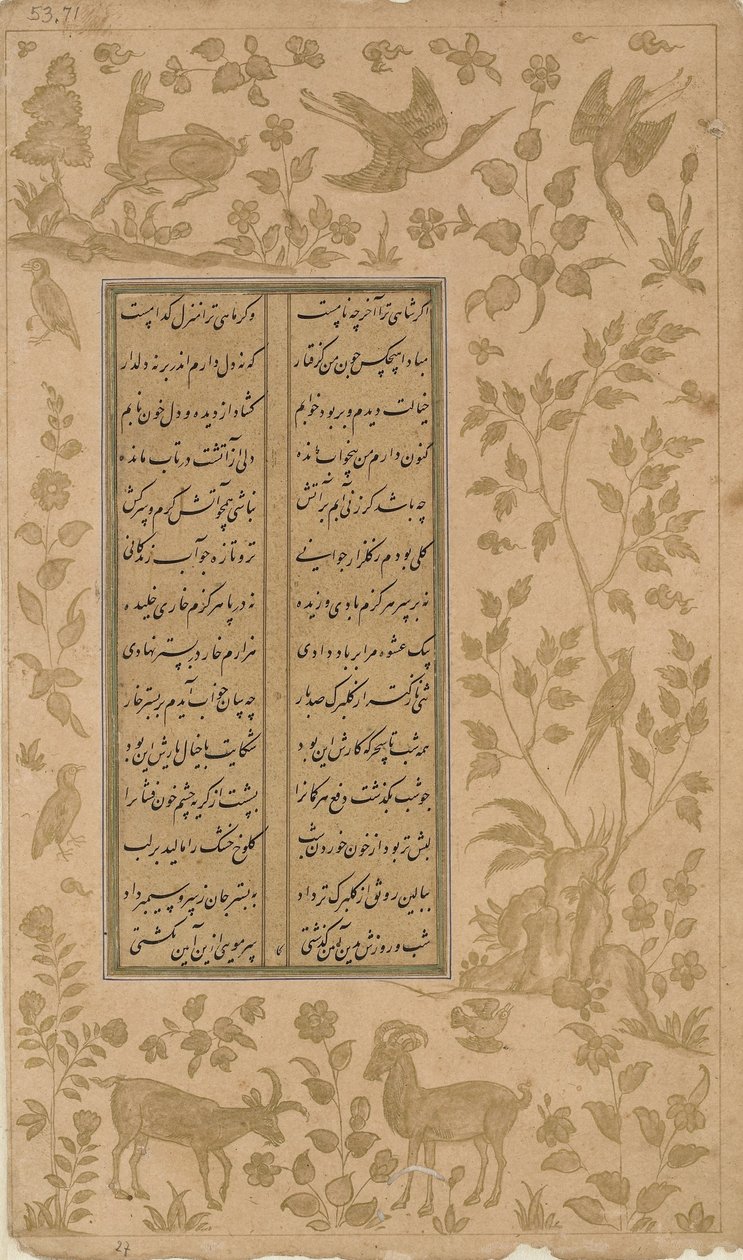 53.71
اگر شاهی ترا آخر چه نامست وگر ماهی ترا منزل کدامست
مبادا هیچکس چون من گرفتار که نه دل دارم اندر بر نه دلدار
خیالت دیدم و بربود خوابم گشاد از دیده و دل خون نابم
کنون دارم من بیخواب مانده دلی از آتشت در تاب مانده
چه باشد گر زنی آبم بر آتش نباشی همچو آتش گرم و سرکش
گلی بودم ز گلزار جوانی تر و تازه چو آب زندگانی
نه بر سر هرگزم بادی وزیده نه در پا هرگزم خاری خلیده
بیک عشوه مرا بر باد دادی هزارم خار در بستر نهادی
تنی نازکتر از گلبرگ صد بار چه سان خواب آیدم بر بستر خار
همه شب تا سحرگه کارش این بود شکایت با خیال یارش این بود
چو شب بگذشت دفع هر گمانرا بشست از گریه چشم خون فشانرا
لبش تر بود از خون خوردن شب کلوخ خشک را مالید بر لب
ببالین رونق از گلبرگ تر داد به بستر جان ز سرو سیمبر داد
شب و روزش بدین آیین گذشتی سر مویی ازین آیین نگشتی
27